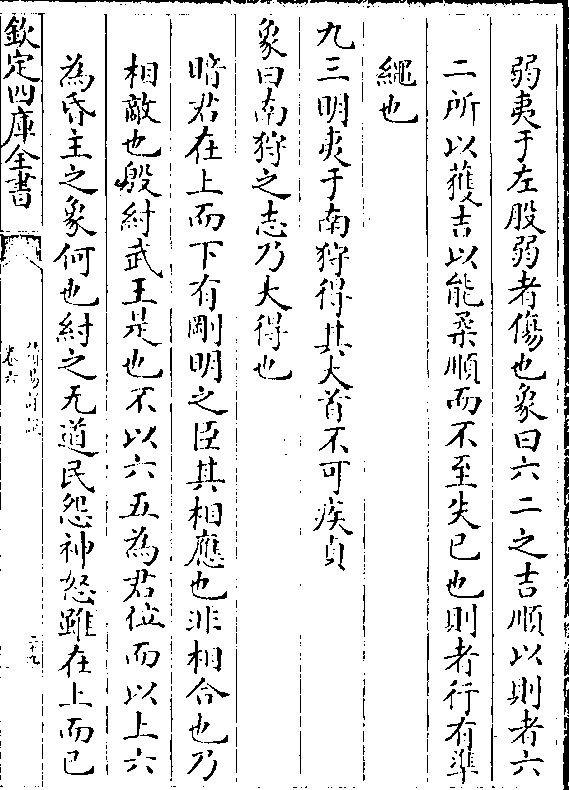 弱夷于左股弱者傷也象曰六二之吉順以則者六
二所以獲吉以能柔順而不至失已也則者行有準
繩也
九三明夷于南狩得其大首不可疾貞
象曰南狩之志乃大得也
暗君在上而下有剛明之臣其相應也非相合也乃
相敵也殷紂武王是也不以六五為君位而以上六
為昏主之象何也紂之无道民怨神怒雖在上而已
欽定四庫全書
卷六
二十九